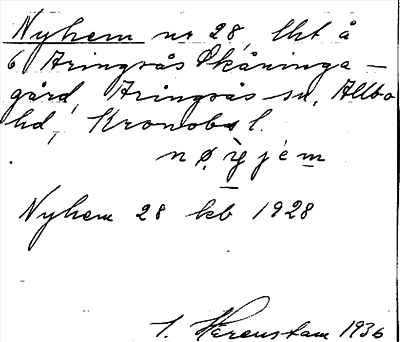 Nyhem nr 28, lht å
6 Aringsås Skåninga-
gård, Aringsås sn, Allbo
hd, Kronobs l.
nø̣ỳjém
Nyhem 28 kb 1928
Harenstam 1936